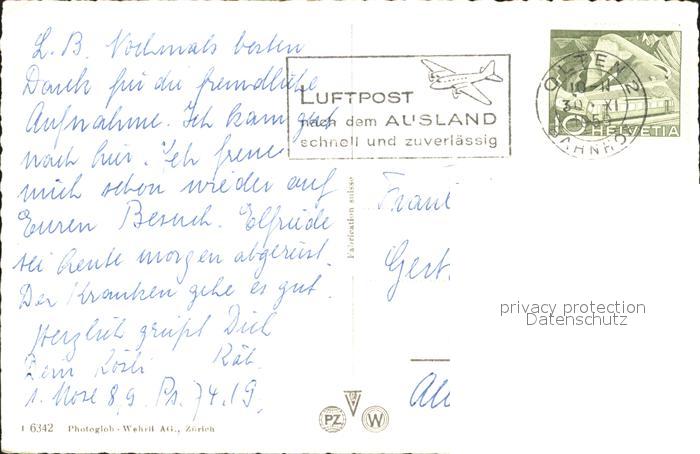 L. B. Nochmals besten
Dank für die freundliche
Aufnahme. Ich kam gut
nach hier. Ich freue
mich schon wieder auf
Euren Besuch. Elfriede
sei heute morgen abgereist.
Der Kranken gehe es gut.
Herzlich grüßt Dich
Dein Rösli Räb.
1. Mose 8,9. Ps. 74.19.
1 6342 Photoglob-Wehrli AG., Zürich
Fabrication suisse
PZ
W
LUFTPOST
nach dem AUSLAND
schnell und zuverlässig
OLTEN 2
30. XI
1950
BAHNHOF
10 HELVETIA
privacy protection
Datenschutz